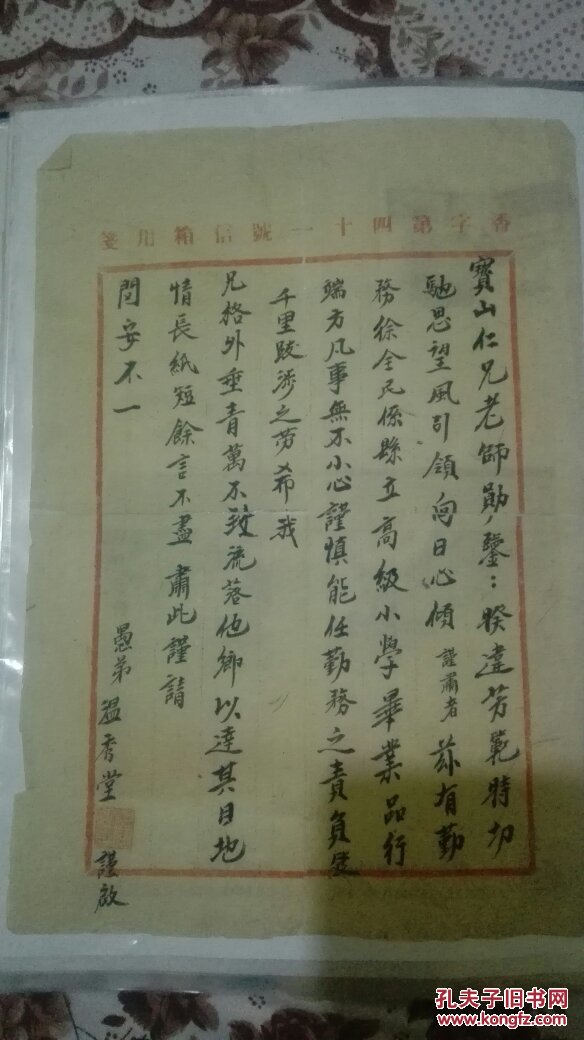 香字第四十一號信箱用箋
寶山仁兄老師勛鑒：睽違芳範時切
馳思望風引領向日心傾謹肅者茲有勤
務徐全民係縣立高級小學畢業品行
端方凡事無不小心謹慎能任勤務之責負笈
千里跋涉之勞希我
兄格外垂青萬不致流落他鄉以達其目地
情長紙短餘言不盡肅此謹請
閏安不一
愚弟溫秀堂 謹啟
孔夫子旧书网
www.kongfz.com